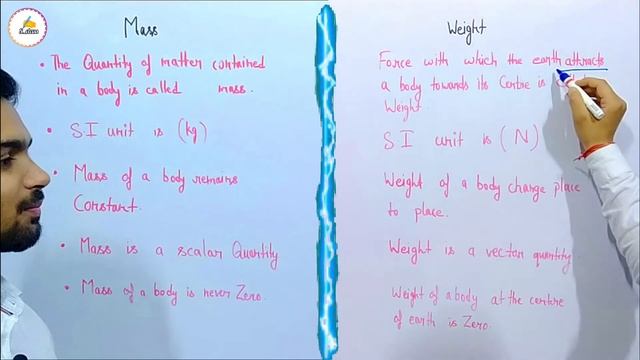 Mass
• The Quantity of matter contained
in a body is called mass.
• SI unit is (kg)
• Mass of a body remains
Constant.
• Mass is a scalar Quantity
• Mass of a body is never Zero.
Weight
Force with which the earth attracts
a body towards its Centre is
Weight.
SI unit is (N)
Weight of a body change place
to place.
Weight is a vector quantity.
Weight of a body at the centre
of earth is Zero.